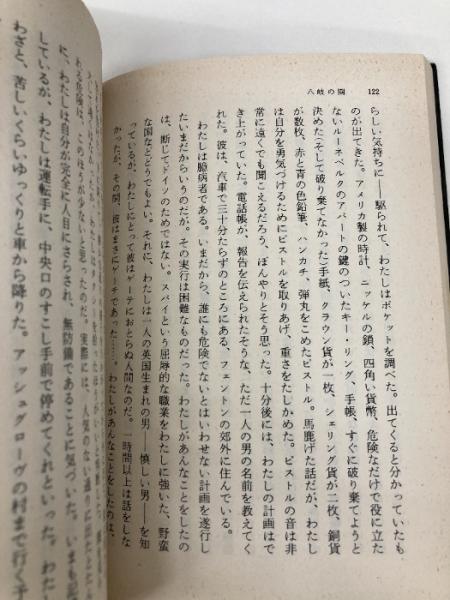 122
八岐の園
らしい気持ちに――駆られて、わたしはポケットを調べた。出てくると分かっていたも
のが出てきた。アメリカ製の時計、ニッケルの鎖、四角い貨幣、危険なだけで役に立た
ないルーネベルクのアパートの鍵のついたキー・リング、手帳、すぐに破り棄てようと
決めた(そして破り棄てなかった)手紙、クラウン貨が一枚、シェリング貨が二枚、銅貨
が数枚、赤と青の色鉛筆、ハンカチ、弾丸をこめたピストル。馬鹿げた話だが、わたし
は自分を勇気づけるためにピストルを取りあげ、重さをたしかめた。ピストルの音は非
常に遠くでも聞こえるだろう、ぼんやりとそう思った。十分後には、わたしの計画はで
き上がっていた。電話帳が、報告を伝えられそうな、ただ一人の男の名前を教えてく
れた。彼は、汽車で三十分たらずのところにある、フェントンの郊外に住んでいる。
わたしは臆病者である。いまだから、誰にも危険でないとはいわせない計画を遂行し
たいまだからいうのだが。その実行は困難なものだった。わたしがあんなことをしたの
は、断じてドイツのためではない。スパイという屈辱的な職業をわたしに強いた、野蛮
な国などどうでもよい。それに、わたしは一人の英国生まれの男――慎しい男――を知
っているが、わたしにとって彼はゲーテにおとらぬ人間なのだ。一時間以上は話をしな
かったが、その間、彼はまさにゲーテであった……。わたしがあんなことをしたのは、
に、わたしは自分が完全に人目にさらされ、無防備であることに気づいた。いまも
しているが、わたしは運転手に、中央口のすこし手前で停めてくれといった。わた
わざと、苦しいくらいゆっくりと車から降りた。アッシュグローヴの村まで行く